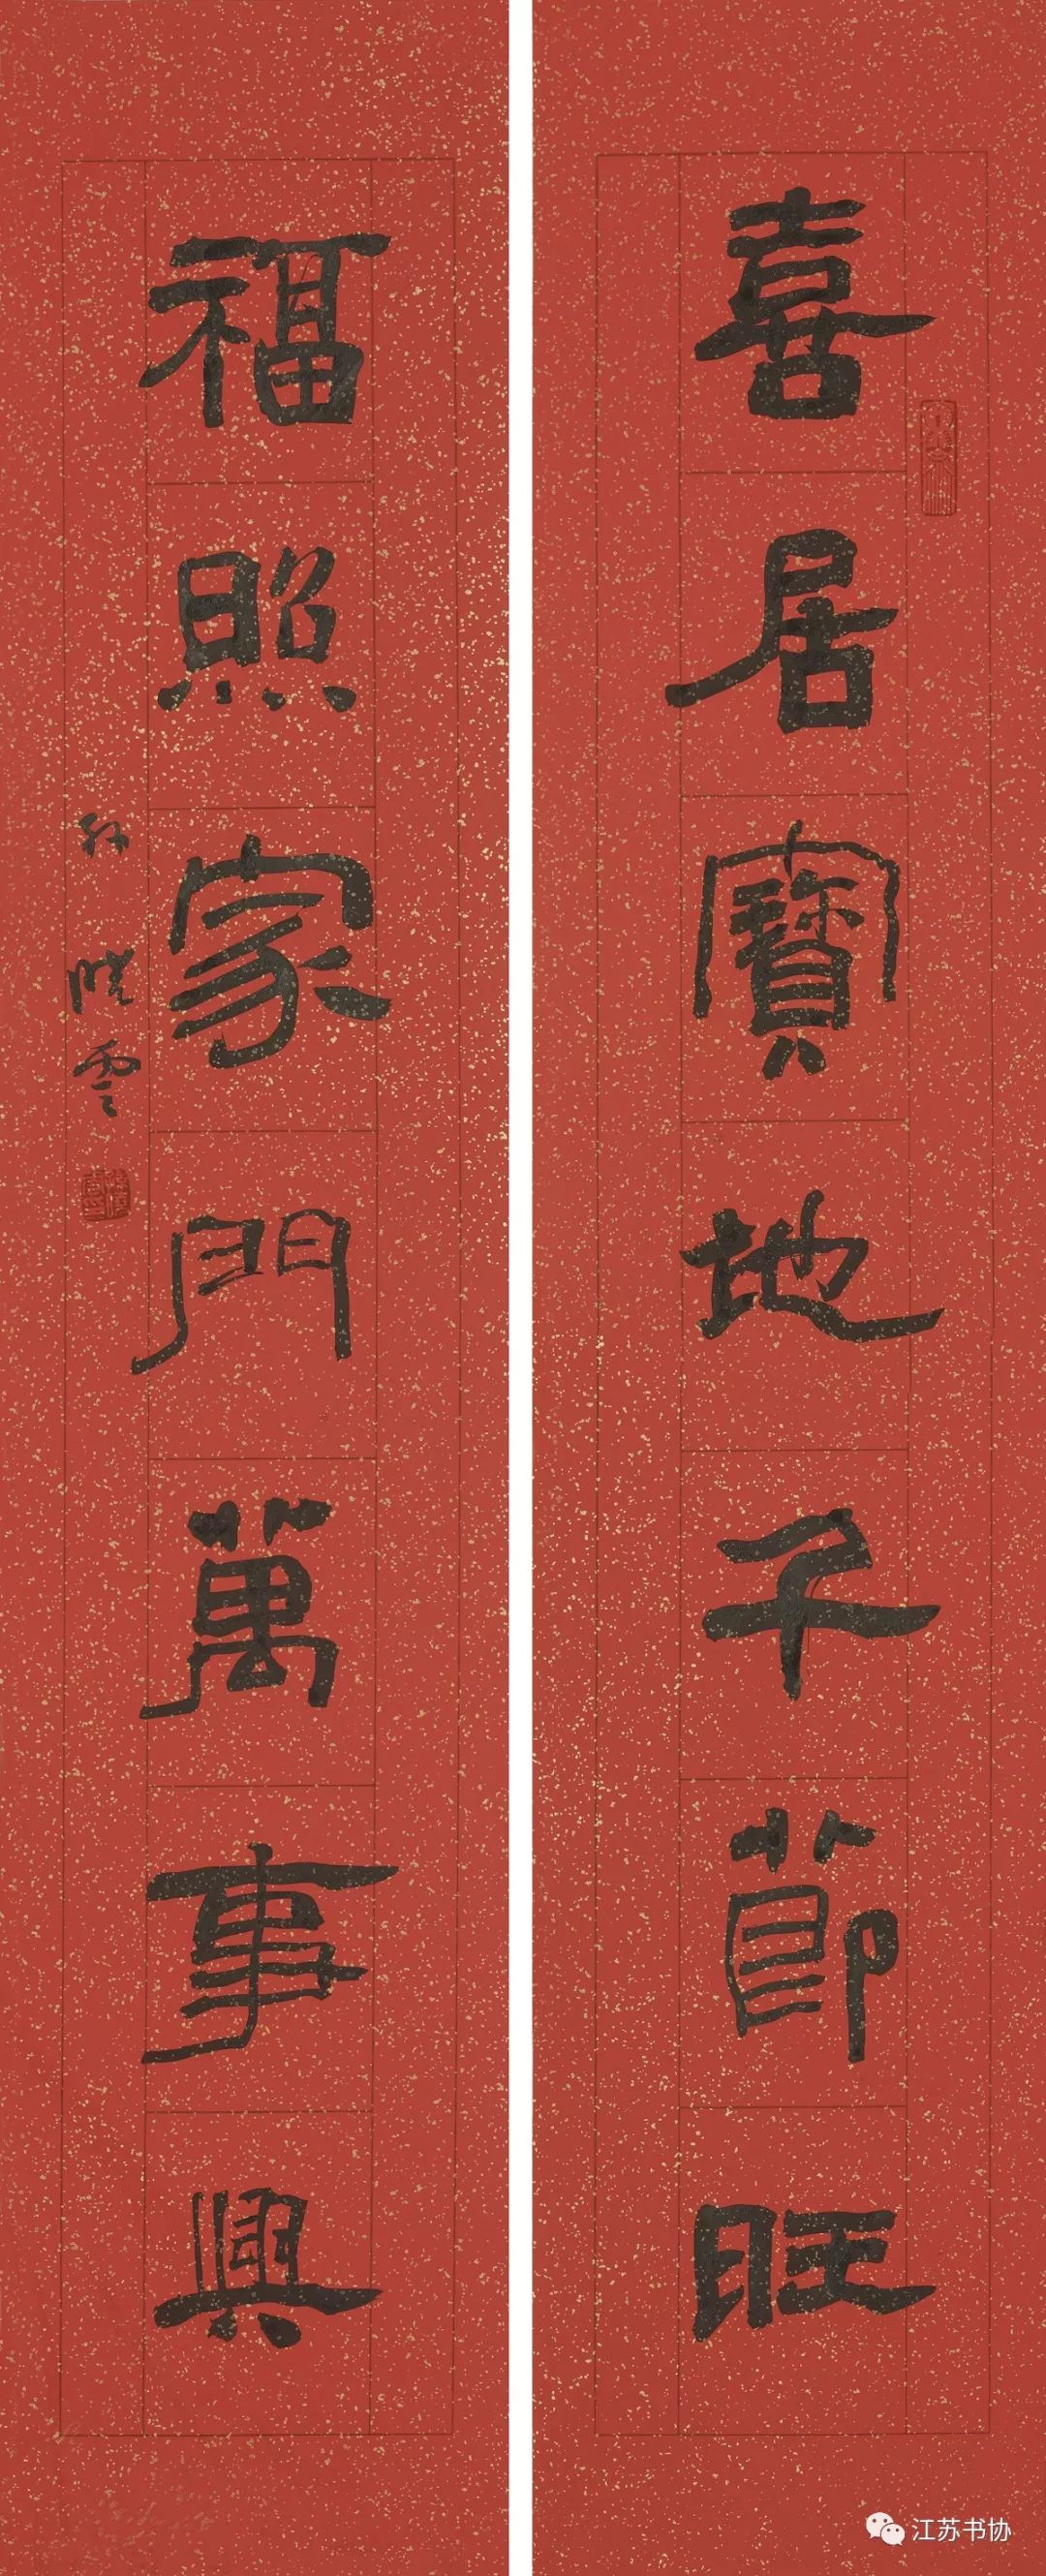 喜居寶地子節旺
福照家門萬事興
孙晓雲
江苏书协